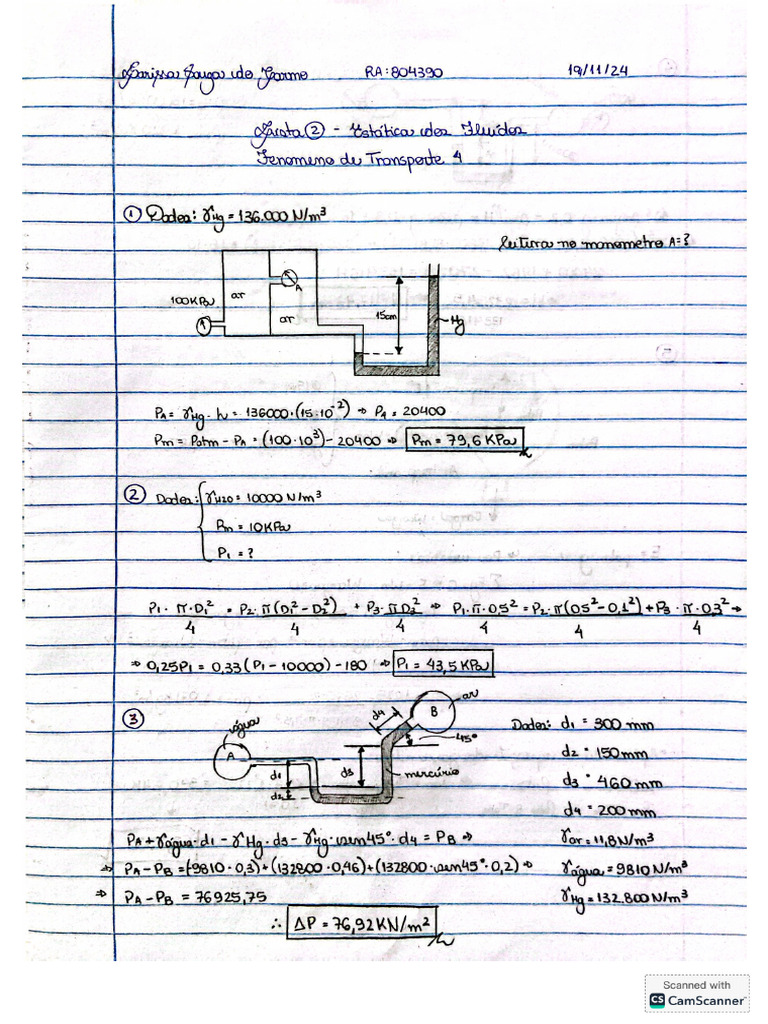 Larissa Souza do Carmo RA: 804390 19/11/24
Lista ② - Estática dos Fluidos
Fenomeno de Transporte 4
① Dados: γHg = 136.000 N/m³
leitura no manometro A = ?
100KPa
ar
A
ar
15cm
Hg
PA = γHg · h = 136000·(15·10⁻²) → PA = 20400
Pm = Patm - PA = (100·10³) - 20400 → Pm = 79,6 KPa
② Dados: γH2O = 10000 N/m³
Pm = 10KPa
P1 = ?
P1 · π·D1²/4 = P2·π(D1² - D2²)/4 + P3·πD2²/4 ⇒ P1·π·0,5²/4 = P2·π(0,5² - 0,1²)/4 + P3·π·0,3²/4 →
→ 0,25P1 = 0,33(P1 - 10000) - 180 → P1 = 43,5 KPa
③
água
A
d1
d2
d3
d4
B
ar
45°
mercúrio
Dados: d1 = 300 mm
d2 = 150mm
d3 = 460 mm
d4 = 200 mm
PA + γágua·d1 - γHg·d3 - γHg·sen45°·d4 = PB → γar = 11,8 N/m³
→ PA - PB = (-9810·0,3) + (132800·0,46) + (132800·sen45°·0,2) → γágua = 9810 N/m³
→ PA - PB = 76925,75 γHg = 132.800 N/m³
∴ ΔP = 76,92 KN/m²
Scanned with
CS CamScanner